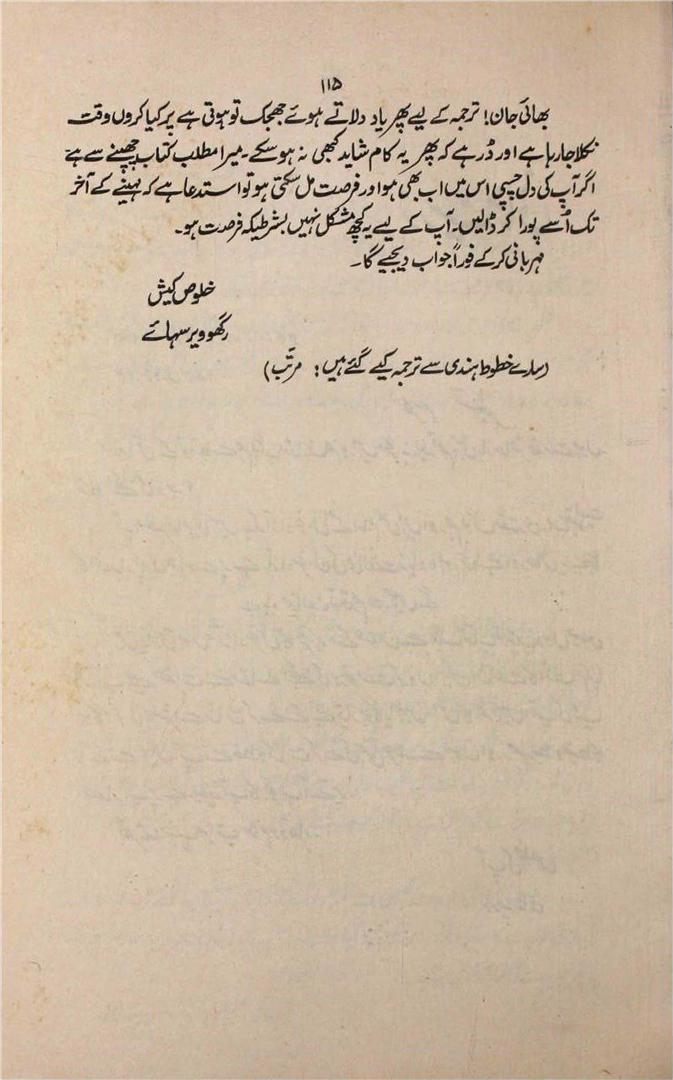 ۱۱۵
بھائی جان! ترجمہ کے لیے پھر یاد دلاتے ہوئے جھجک تو ہوتی ہے پر کیا کروں وقت
نکلا جا رہا ہے اور ڈر ہے کہ پھر یہ کام شاید کبھی نہ ہو سکے۔ میرا مطلب کتاب چھپنے سے ہے
اگر آپ کی دل چسپی اس میں اب بھی ہو اور فرصت مل سکتی ہو تو استدعا ہے کہ مہینے کے آخر
تک اُسے پورا کر ڈالیں۔ آپ کے لیے یہ کچھ مشکل نہیں بشرطیکہ فرصت ہو۔
مہربانی کر کے فوراً جواب دیجیے گا۔
خلوص کیش
رگھوویر سہائے
(سارے خطوط ہندی سے ترجمہ کیے گئے ہیں: مرتّب)